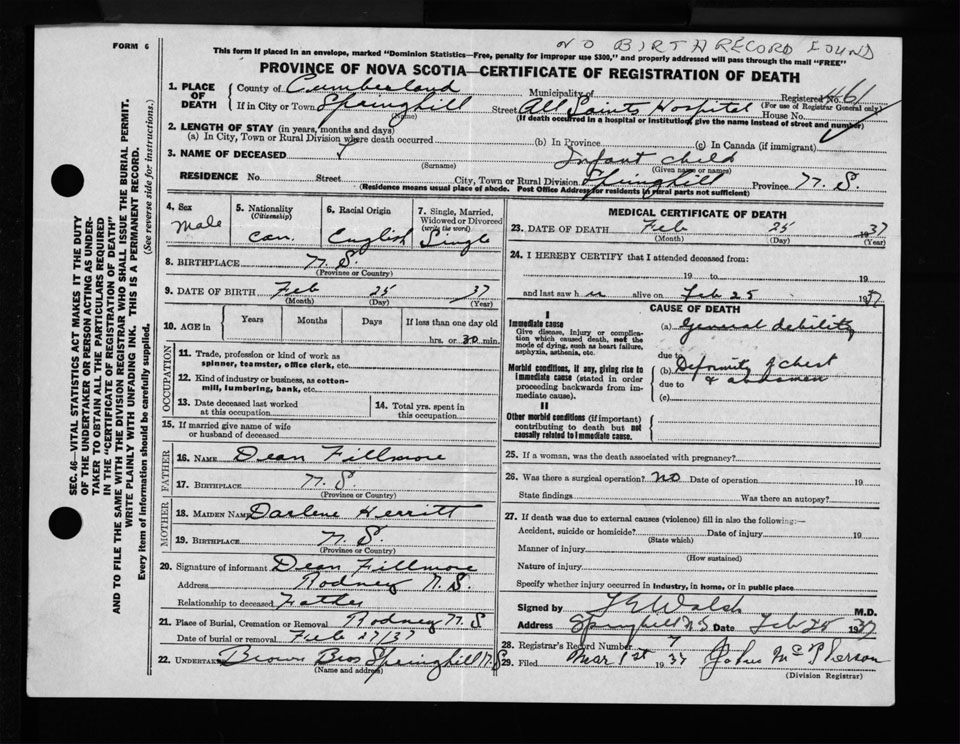 NO BIRTH RECORD FOUND
FORM 6
This form if placed in an envelope, marked "Dominion Statistics—Free, penalty for improper use $300," and properly addressed will pass through the mail "FREE"
PROVINCE OF NOVA SCOTIA—CERTIFICATE OF REGISTRATION OF DEATH
SEC. 46—VITAL STATISTICS ACT MAKES IT THE DUTY
OF THE UNDERTAKER OR PERSON ACTING AS UNDER-
TAKER TO OBTAIN ALL THE PARTICULARS REQUIRED
IN THE "CERTIFICATE OF REGISTRATION OF DEATH"
AND TO FILE THE SAME WITH THE DIVISION REGISTRAR WHO SHALL ISSUE THE BURIAL PERMIT.
WRITE PLAINLY WITH UNFADING INK. THIS IS A PERMANENT RECORD.
Every item of information should be carefully supplied. (See reverse side for instructions.)
1. PLACE OF DEATH
County of Cumberland Municipality of Registered No. 461
(For use of Registrar General only)
If in City or Town Springhill Street All Saints Hospital House No.
(Name) (If death occurred in a hospital or institution, give the name instead of street and number)
2. LENGTH OF STAY (in years, months and days)
(a) In City, Town or Rural Division where death occurred (b) In Province (c) In Canada (if immigrant)
3. NAME OF DECEASED Infant child
(Surname) (Given name or names)
RESIDENCE No. Street City, Town or Rural Division Springhill Province N. S.
(Residence means usual place of abode. Post Office Address for residents in rural parts not sufficient)
4. Sex Male
5. Nationality (Citizenship) Can.
6. Racial Origin English
7. Single, Married, Widowed or Divorced (write the word) Single
8. BIRTHPLACE N. S.
(Province or Country)
9. DATE OF BIRTH Feb 25 37
(Month) (Day) (Year)
10. AGE in Years Months Days If less than one day old
hrs. or 30 min.
OCCUPATION
11. Trade, profession or kind of work as spinner, teamster, office clerk, etc.
12. Kind of industry or business, as cotton-mill, lumbering, bank, etc.
13. Date deceased last worked at this occupation
14. Total yrs. spent in this occupation
15. If married give name of wife or husband of deceased
FATHER
16. NAME Dean Fillmore
17. BIRTHPLACE N. S.
(Province or Country)
MOTHER
18. MAIDEN NAME Darlene Herritt
19. BIRTHPLACE N. S.
(Province or Country)
20. Signature of informant Dean Fillmore
Address Rodney N. S.
Relationship to deceased Father
21. Place of Burial, Cremation or Removal Rodney N. S.
Date of burial or removal Feb 27/37
22. UNDERTAKER Brown Bros Springhill N. S.
(Name and address)
MEDICAL CERTIFICATE OF DEATH
23. DATE OF DEATH Feb 25 1937
(Month) (Day) (Year)
24. I HEREBY CERTIFY that I attended deceased from:
19 to 19
and last saw h alive on Feb 25 1937
CAUSE OF DEATH
I
Immediate cause
Give disease, injury or complication which caused death, not the mode of dying, such as heart failure, asphyxia, asthenia, etc.
(a) General debility
due to
Morbid conditions, if any, giving rise to immediate cause (stated in order proceeding backwards from immediate cause).
(b) Deformity of chest & abdomen
due to
(c)
II
Other morbid conditions (if important) contributing to death but not causally related to immediate cause.
25. If a woman, was the death associated with pregnancy?
26. Was there a surgical operation? No Date of operation 19
State findings Was there an autopsy?
27. If death was due to external causes (violence) fill in also the following:—
Accident, suicide or homicide? Date of injury 19
(State which)
Manner of injury
(How sustained)
Nature of injury
Specify whether injury occurred in industry, in home, or in public place
Signed by Walsh M.D.
Address Springhill N.S. Date Feb 25 1937
28. Registrar's Record Number 7
29. Filed Mar 1st 1937 John McPherson
(Division Registrar)